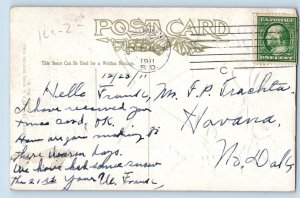 160-2
POST CARD
This Space Can be Used for a Written Message.
1911
12/23/11
U.S. POSTAGE
ONE CENT
Hello Frank,
I have received your
Xmas card, OK.
How are you making it
these warm days.
We have had some snow
the 21st Your Un. Frank,
Mr. F. P. Trachta
Havana,
No. Dak